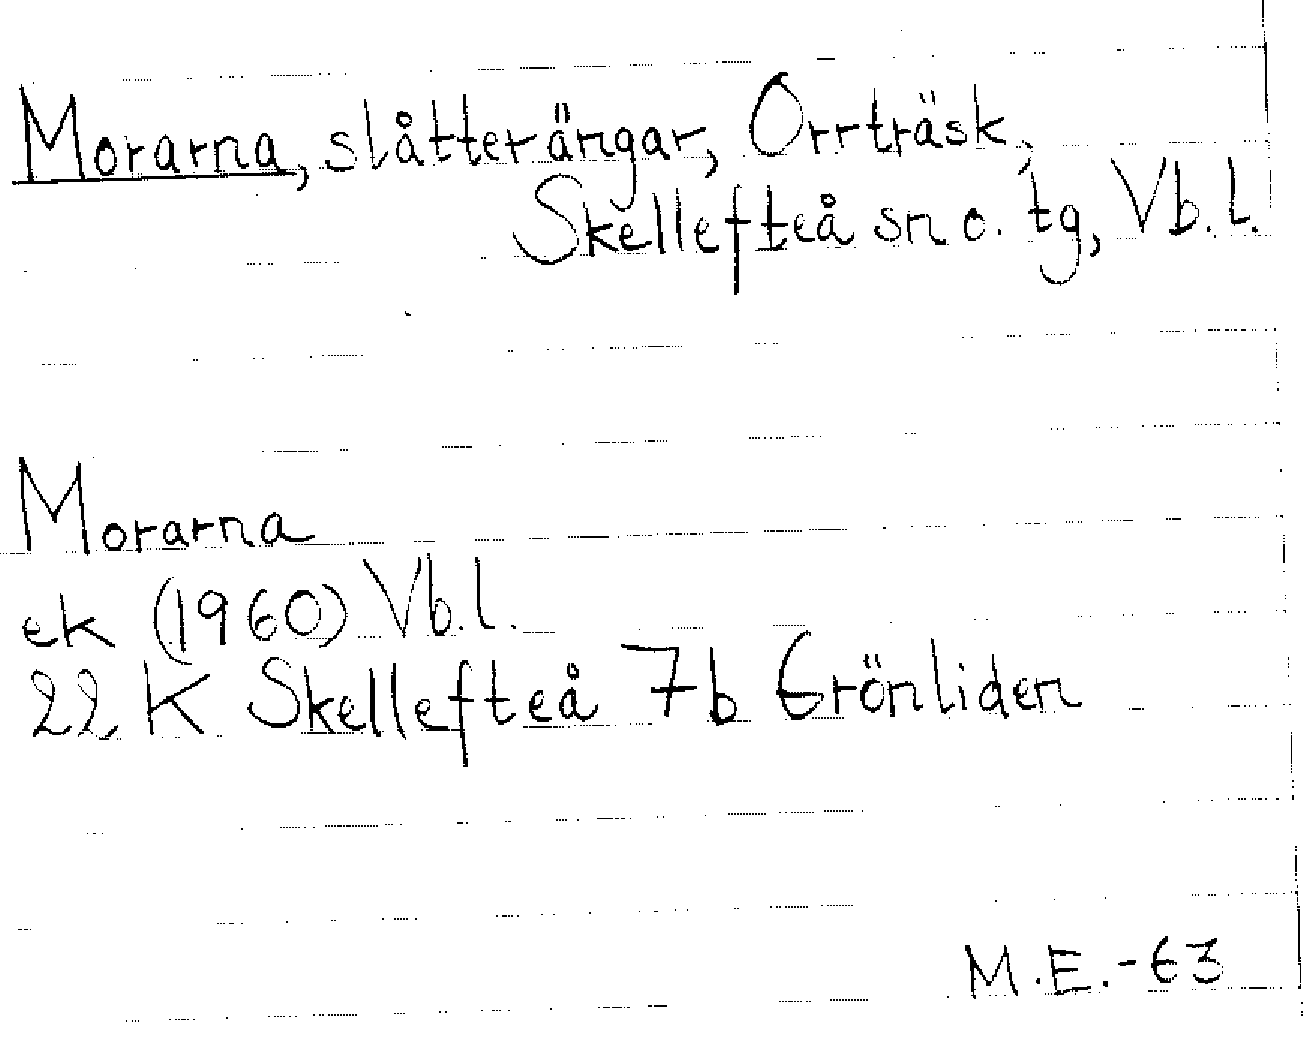 Morarna, slåtterängar, Orrträsk,
Skellefteå sn o. tg, Vb. l.
Morarna
ek (1960) Vb. l.
22 K Skellefteå 7b Grönliden
M.E.-63